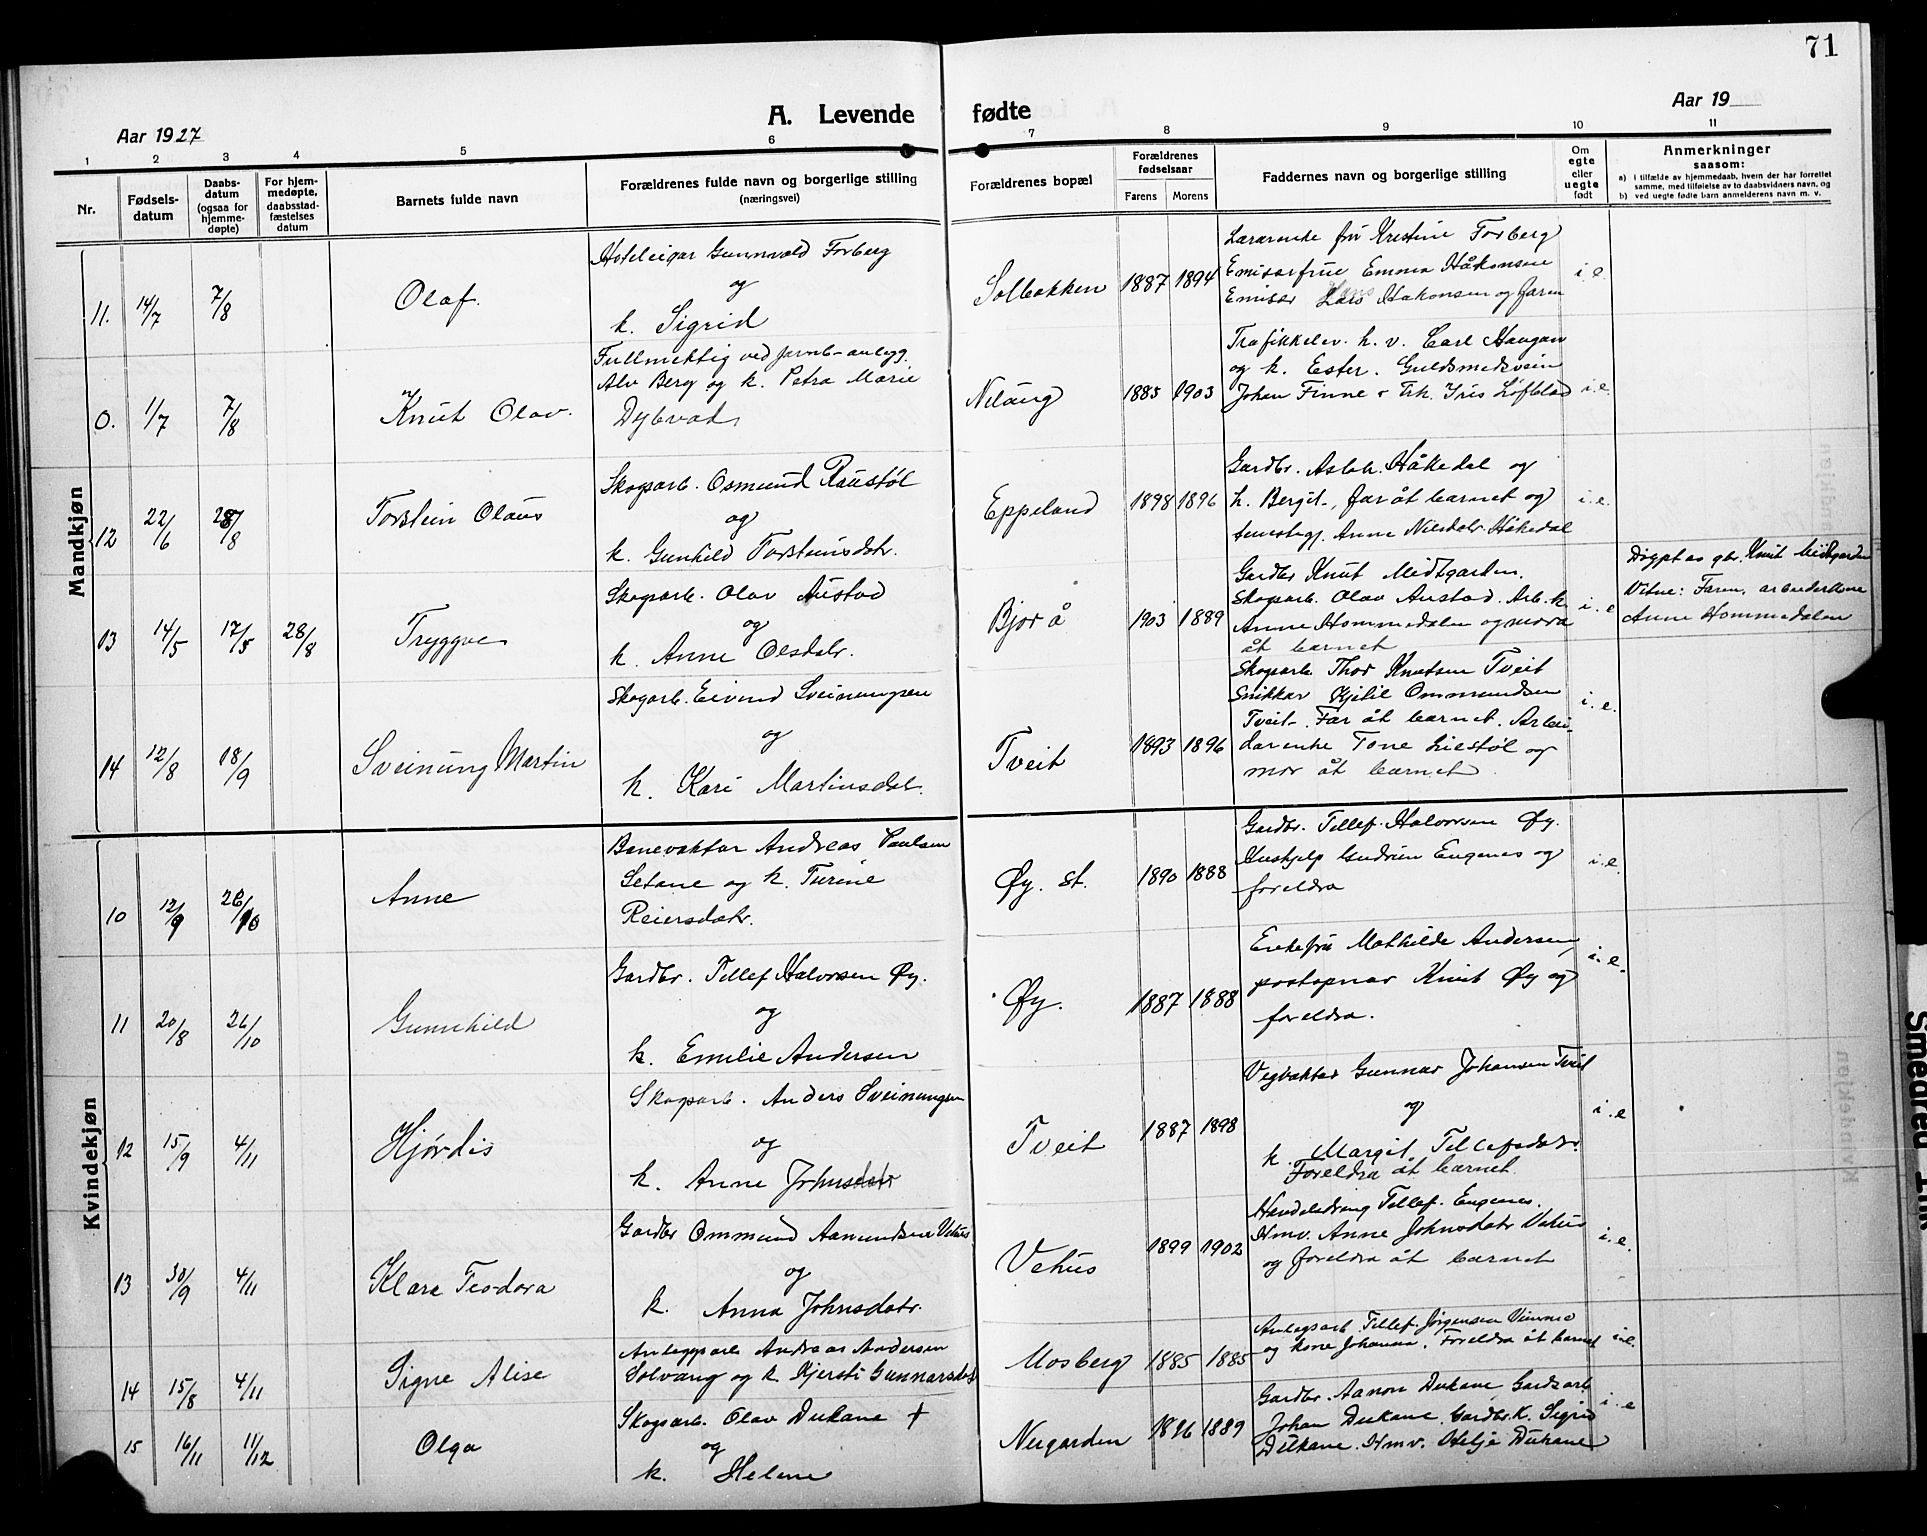 71
Aar 1927
A. Levende fødte
Aar 19
1 2 3 4 5 6 7 8 9 10 11
Nr.
Fødselsdatum
Daabsdatum (ogsaa for hjemmedøpte)
For hjemmedøpte, daabsstadfæstelses datum
Barnets fulde navn
Forældrenes fulde navn og borgerlige stilling
(næringsvei)
Forældrenes bopæl
Forældrenes fødselsaar
Farens Morens
Faddernes navn og borgerlige stilling
Om egte eller uegte født
Anmerkninger
saasom:
a) I tilfælde av hjemmedaab, hvem der har forrettet samme, med tilføielse av to daabsvidners navn, og
b) ved uegte fødte barn anmelderens navn m. v.
Mandkjøn
11. 14/7 7/8 Olaf.
Hoteleigar Gunnvald Forberg
og
k. Sigrid
Solbakken 1887 1894
Lærarende frú Kristine Forberg
Emisærfrue Emma Håkonsen
Emisær Håkonsen og faren
i.e.
0. 1/7 7/8 Knut Olav.
Fullmektig ved jarnb-anlegg.
Alv Berg og k. Petra Marie
Dybvad
Nelaug 1885 1903
Trafikkelev. h. v. Carl Haugan
og k. Ester. Guldsmedsvein
Johan Finne & Frk. Iris Løfblad
i.e.
12 22/6 28/8 Torstein Olaus
Skogsarb. Osmund Raustøl
og
k. Gunhild Torsteinsdtr.
Eppeland 1898 1896
Gardbr. Asbh. Håkedal og
k. Bergit, far åt barnet og
Anne Nilsdotr. Håkedal
i.e.
13 14/5 17/5 28/8 Tryggve
Skogsarb. Olav Austad
og
k. Anne Olsdotr.
Bjorå 1903 1889
Gardbr Knut Midtgarden.
Skogsarb. Olav Austad. Arb. k.
Anne Hommedalen og mora
åt barnet
i.e.
Døypt av gbr. Knut Midtgarden
Vitne: Faren, arbeiderkone
Anne Hommedalen
14 12/8 18/9 Sveinung Martin
Skogarb. Eivind Sveinungsen
og
k. Kari Martinsdot.
Tveit 1893 1896
Skogsarb. Thor Knutsen Tveit
Snikkar Kjetil Ommundsen
Tveit. Far åt barnet. Arbei-
darenke Tone Liestøl og
mor åt barnet.
i.e.
Kvindekjøn
10 12/9 26/10 Anne
Banevaktar Andreas Paulsen
Setane og k. Turine
Reiersdotr.
Øy. st. 1890 1888
Gardbr. Tellef Halvorsen Øy.
Hushjelp Gudrun Eugenes og
foreldra
i.e.
11 20/8 26/10 Gunnhild
Gardbr. Tellef Halvorsen Øy.
og
k. Emilie Andersen
Øy. 1887 1888
Enkefrú Mathilde Andersen,
postopnar Knut Øy og
foreldra.
i.e.
12 15/9 4/11 Hjørdis
Skogsarb. Anders Sveinungsen
og
k. Anne Johnsdotr
Tveit 1887 1898
Vegvaktar Gunnar Johansen Tveit
og
k. Margit Tellefsdotr.
Foreldra åt barnet.
i.e
13 30/9 4/11 Klara Teodora
Gardbr Ommund Aamundsen Vehus
og
k. Anna Johnsdotr.
Vehus 1899 1902
Tellef Eugenes.
Hmv. Anne Johnsdotr Vehus
og foreldra åt barnet
i.e.
14 15/8 4/11 Signe Alise
Anleggsarb Andreas Andersen
Solvang og k. Kjersti Gunnarsdot
Mosberg 1885 1885
Anlegsarb Tellef Jørgensen Vimme
og kone Johanna. Foreldra åt barnet
i.e.
15 16/11 11/12 Olga
Skogsarb. Olav Dukane †
og
k. Helene
Neigarden 1896 1889
Gardbr. Aanon Dukane, Gardsarb
Johan Dukane. Gardbr.k. Sigrid
Dukane. Hmv. Helje Dukane
i.e